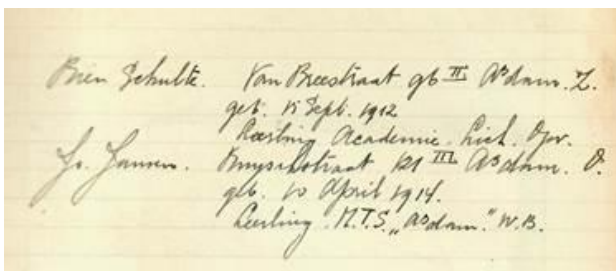 Bien Schulte. Van Breestraat 96 II A'dam. Z.
geb. 15 Sept. 1912
Leerling Academie. Lich. Opv.
Jo. Jansen. 121 III A'dam. O.
geb. 10 April 1914.
Leerling. M.T.S. „A'dam." W.B.